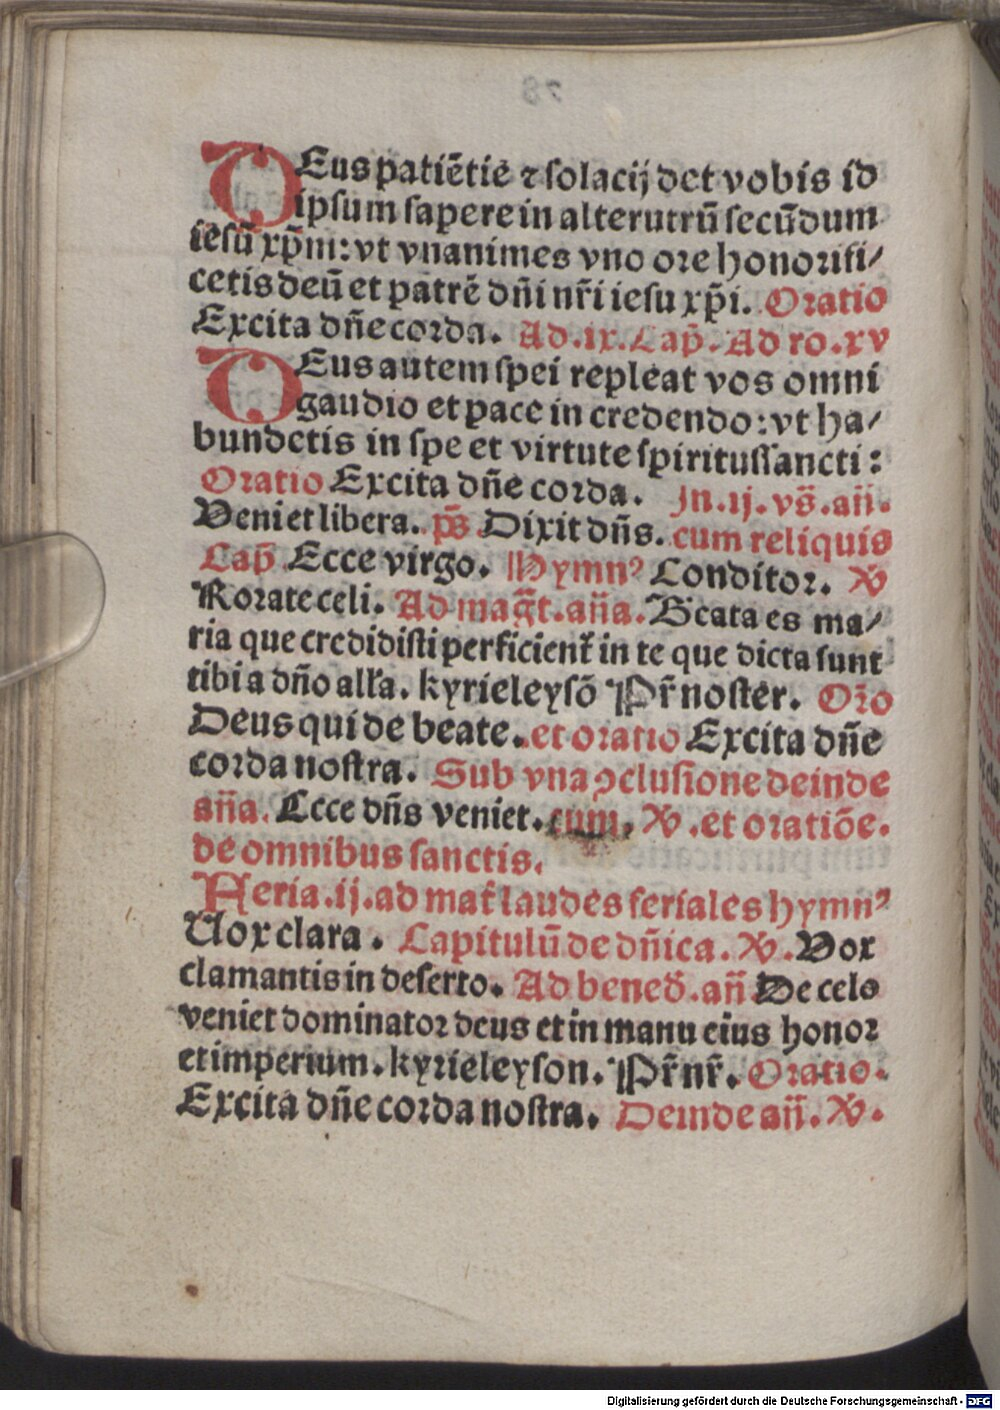 DEus patiētie ⁊ solacij det vobis id
ipsum sapere in alterutrū secūdum
iesū xp̄m: vt vnanimes vno ore honorifi/
cetis deū et patrē dn̄i nr̄i iesu xp̄i. Oratio
Excita dn̄e corda. Ad .ix. Cap̄. Ad ro. xv
DEus autem spei repleat vos omni
gaudio et pace in credendo: vt ha/
bundetis in spe et virtute spiritussancti:
Oratio Excita dn̄e corda. In .ij. vs̄. an̄.
Veni et libera. ps̄. Dixit dn̄s. cum reliquis
Cap̄ Ecce virgo. Hymnꝰ Conditor. ℣
Rorate celi. Ad mag̅t. an̄a. Beata es ma/
ria que credidisti perficient̄ in te que dicta sunt
tibi a dn̄o all̄a. kyrieleysō Pr̄ noster. Or̄o
Deus qui de beate. et oratio Excita dn̄e
corda nostra. Sub vna ꝯclusione deinde
an̄a. Ecce dn̄s veniet. cum. ℣. et oratiōe.
de omnibus sanctis.
Feria .ij. ad mat̄ laudes feriales hymnꝰ
Uox clara. Capitulū de dn̄ica. ℣. Vox
clamantis in deserto. Ad bened̄. an̄ De celo
veniet dominator deus et in manu eius honor
et imperium. kyrieleyson. Pr̄ nr̄. Oratio.
Excita dn̄e corda nostra. Deinde an̄. ℣.
Digitalisierung gefördert durch die Deutsche Forschungsgemeinschaft - DFG